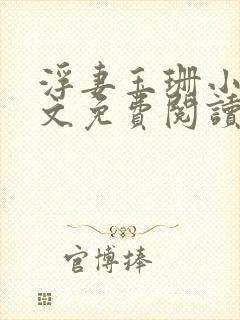 浮妻玉珊小
文免費閱讀
官博捧